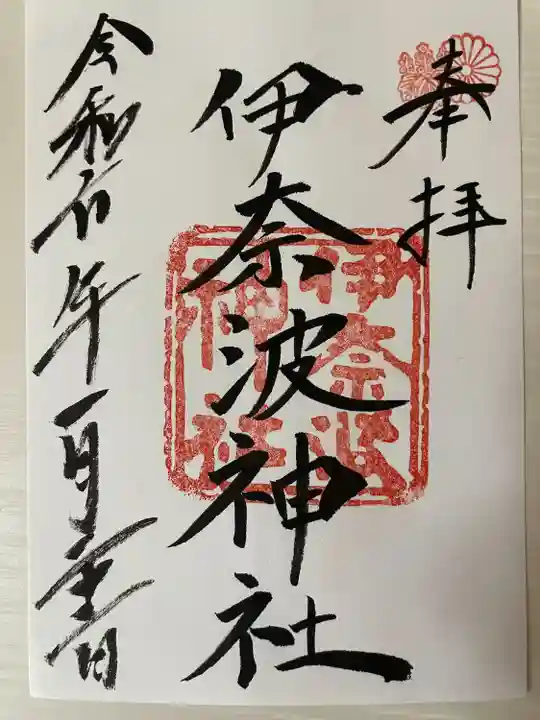 奉拝
伊奈波神社
伊奈波
神社
令和 年一月 日